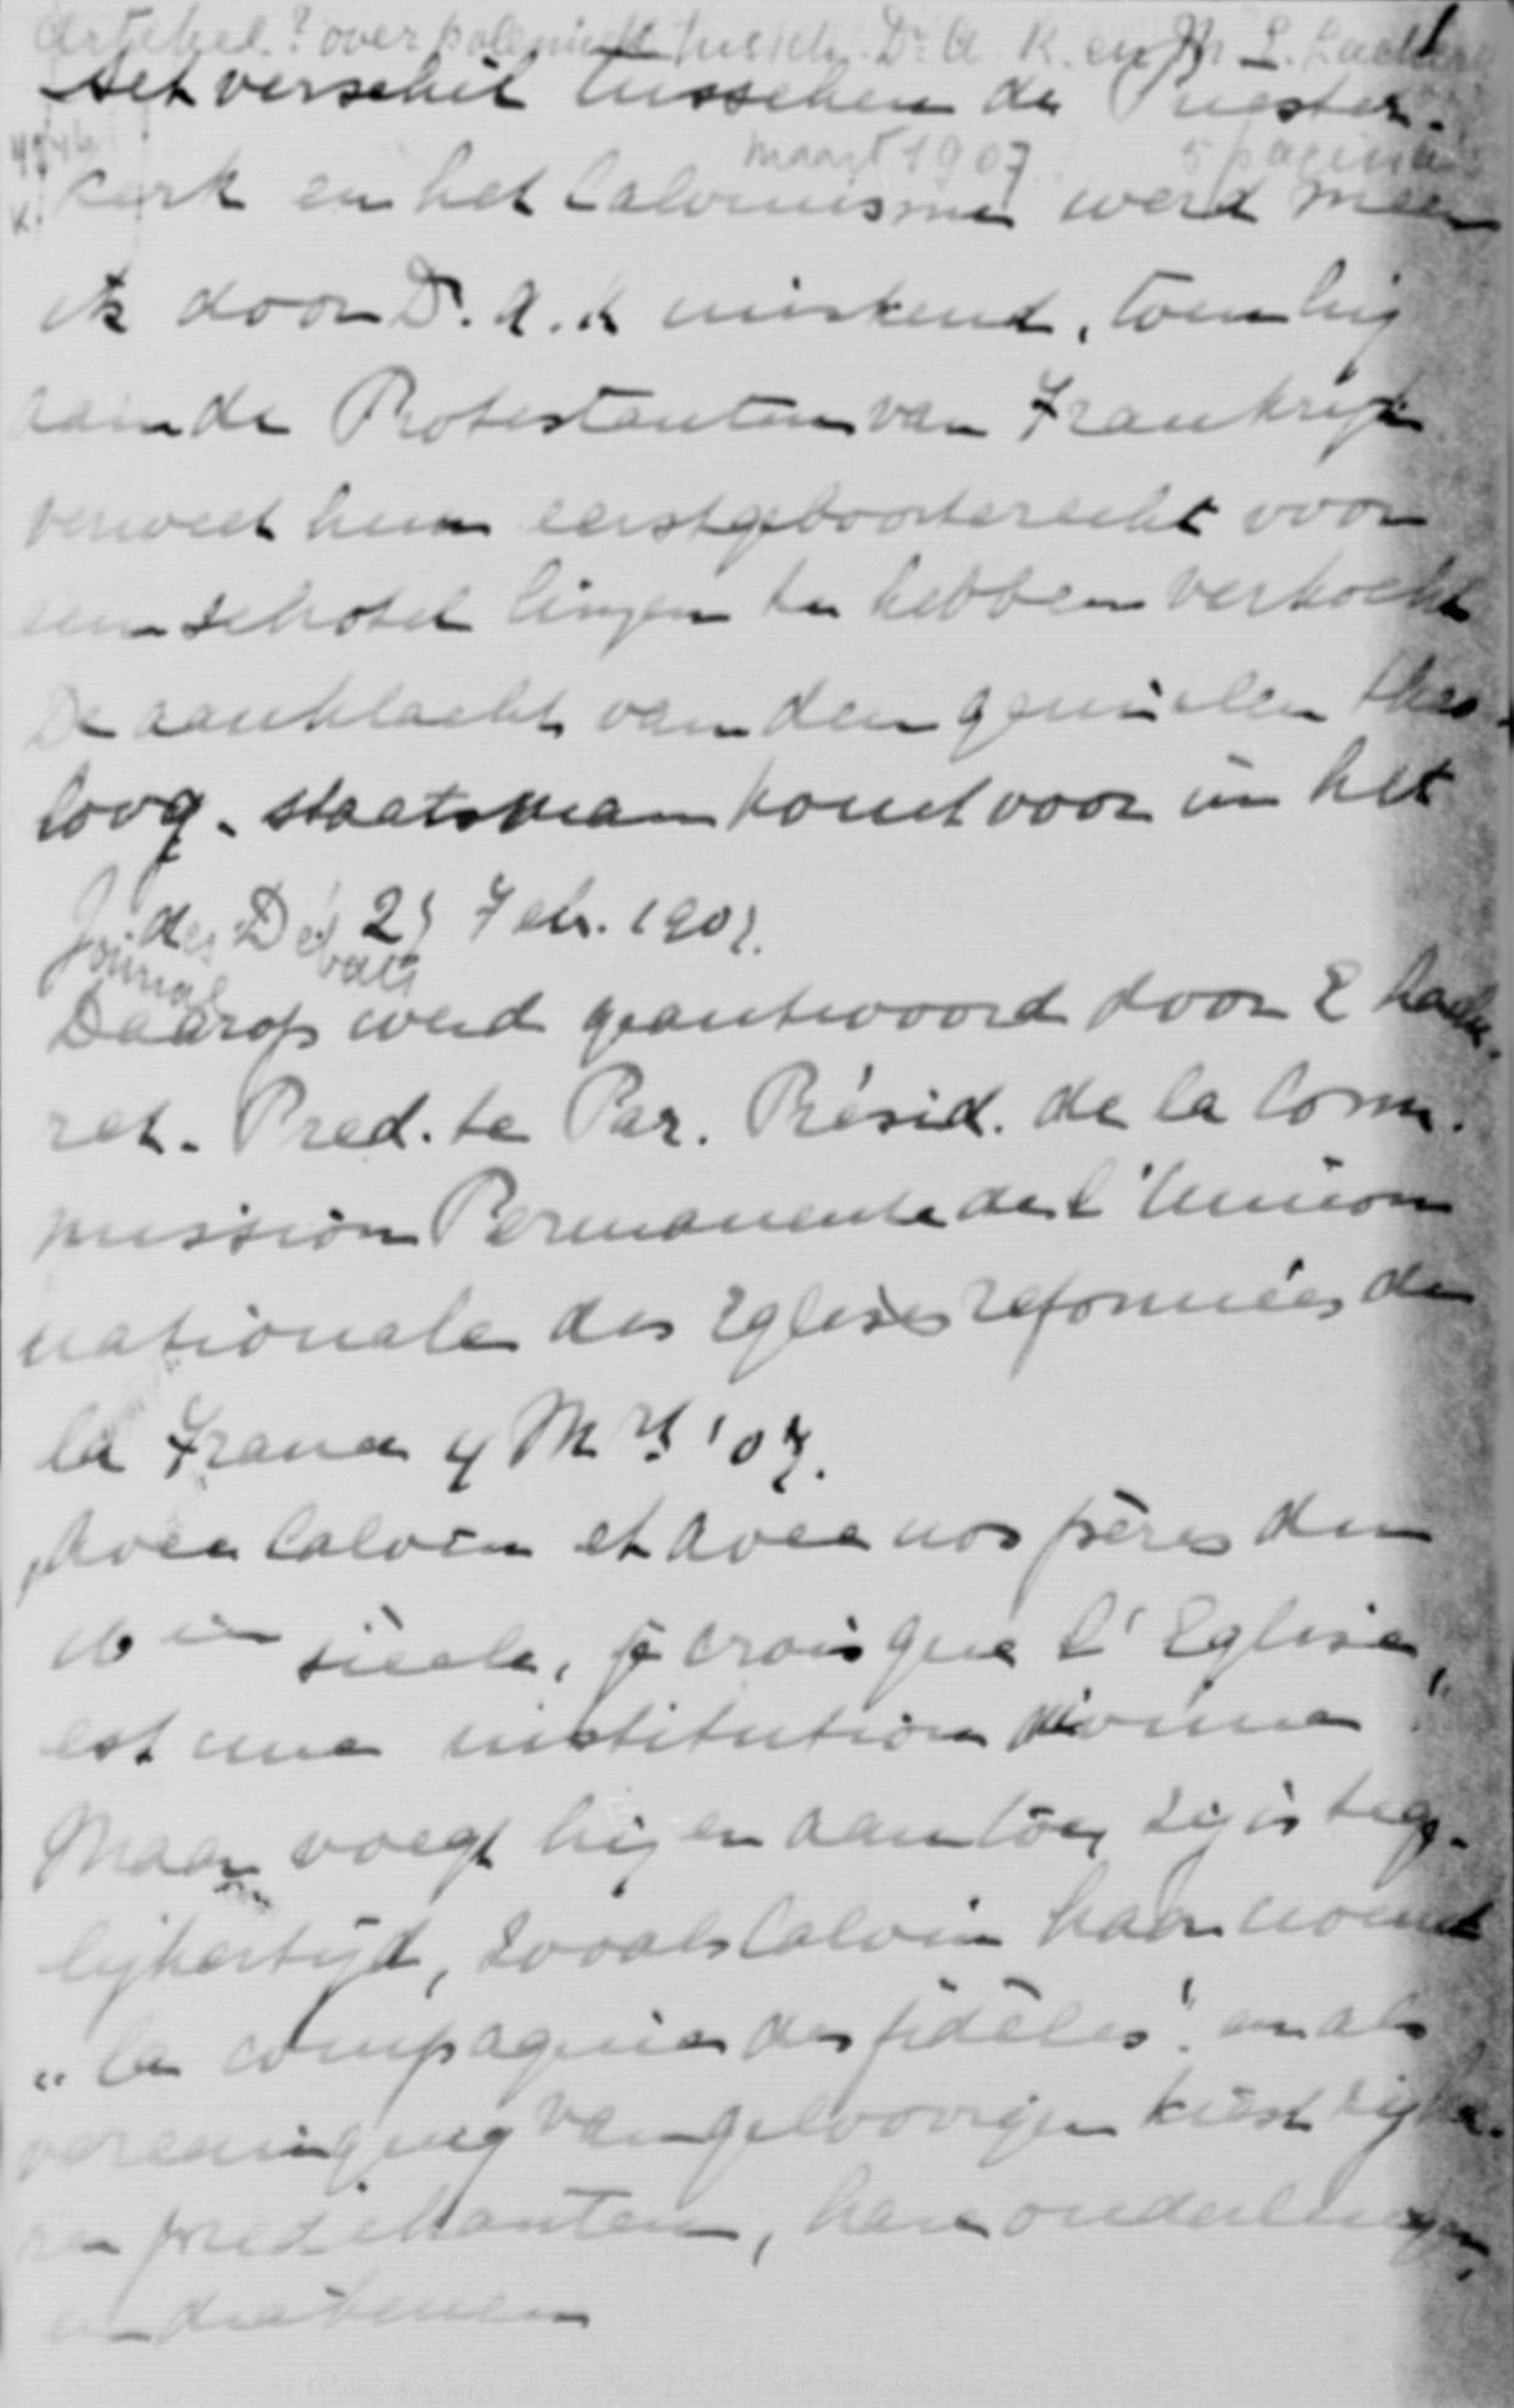 Artikel? over polemiek tussch. Dr. A. K. en L.
Het verschil tusschen de Priester-
maart 1907 5 pagina's
kerk en het Calvinisme werd meen
ik door Dr. A. K miskend, toen hij
aan de Protestanten van Frankrijk
verweet hun eerstgeboorterecht voor
een schotel linzen te hebben verkocht
De aanklacht van den genialen theo-
loog-staatsman komt voor in het
J. des Déb 25 Feb. 1907.
Journal bats
Daarop werd geantwoord door E Lach.
ret. Pred. te Par. Présid. de la Com.
mission Permanente de l'Union
nationale des Eglises reformées de
la France 4 Mrt '07.
„Avec Calvin et avec nos pères du
16 ième siècle, je crois que l'Eglise
est une institution divine"
Maar voegt hij er aan toe, zij is teg-
lijkertijd, zooals Calvin haar noemt
„la compagnie des fidèles" en als
vereeniging van geloovigen kiest zij ha-
re predikanten, hare ouderlingen,
en diakenen